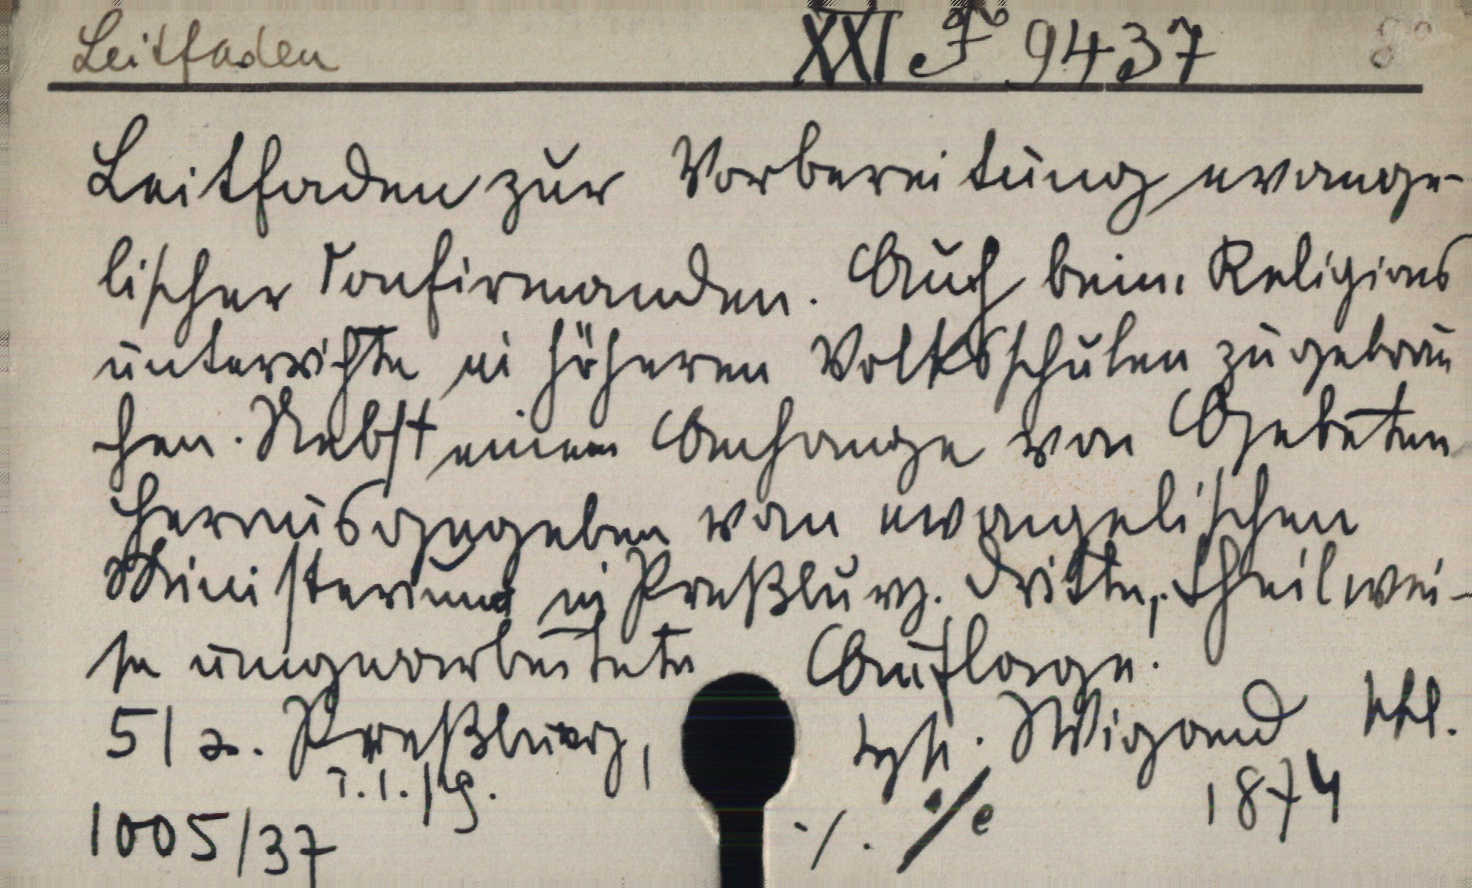 Leitfaden XXI F 9437 8°
Leitfaden zur Vorbereitung evange-
lischer Confirmanden. Auch beim Religions
unterrichte in höheren Volksschulen zu gebrau
chen. Nebst einem Anhange von Gebeten
herausgegeben vom evangelischen
Ministerium in Preßburg. Dritte, theilwei-
se umgearbeitete Auflage.
51 S. Preßburg, typ. Wigand
1874
1005/37 ./.